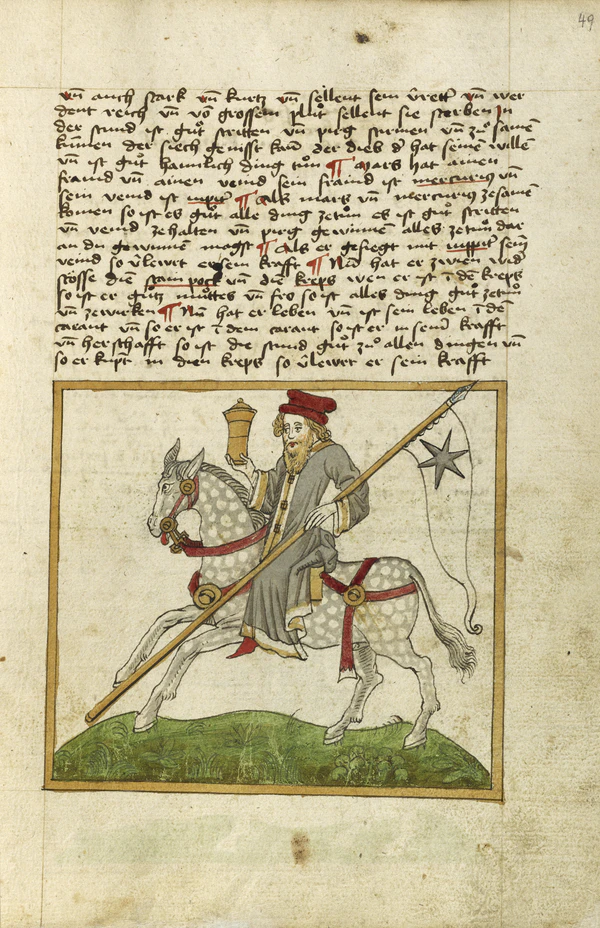 49
vn̄ auch stark vn̄ kurtz vn̄ sellent sein vrett vn̄ wer
dent reich vn̄ vō grossem plůt sellent sie sterben In
der stund ist gůt stritten vn̄ pirg sturmen vn̄ zů samē
kumen der siech genisst kam̄ der dieb d hat seinē willē
vn̄ ist gůt haimlich ding tůn ¶ Mars hat ainen
fraind vn̄ ainen veind sein fraind ist mercurius vn̄
sein veind ist iupiter ¶ Als mars vn̄ mercurius zesamē
komen so ist es gůt alle ding zetůn es ist gůt stritten
vn̄ veind zehalten vn̄ pirg gewinnē alles zetůn dar
an du gewinnē magst ¶ Als er gesiegt mit iuppiter seinē
veind so v̄lewrt er sein krafft ¶ Nun̄ hat er zwien wid
stösse dien stain pock vn̄ die kreps wen er ist ī dē kreps
so ist er gůtz můttes vn̄ fro so ist alles ding gůt zetůn
vn̄ zewirken ¶ Nun̄ hat er leben vn̄ ist sein leben ī dē
carant vn̄ so er ist ī dem carant so ist er in seinē krafft
vn̄ herschafft so ist die stund gůt zů allen dingen vn̄
so er kupt in dien kreps so v̄lewrt er sein krafft